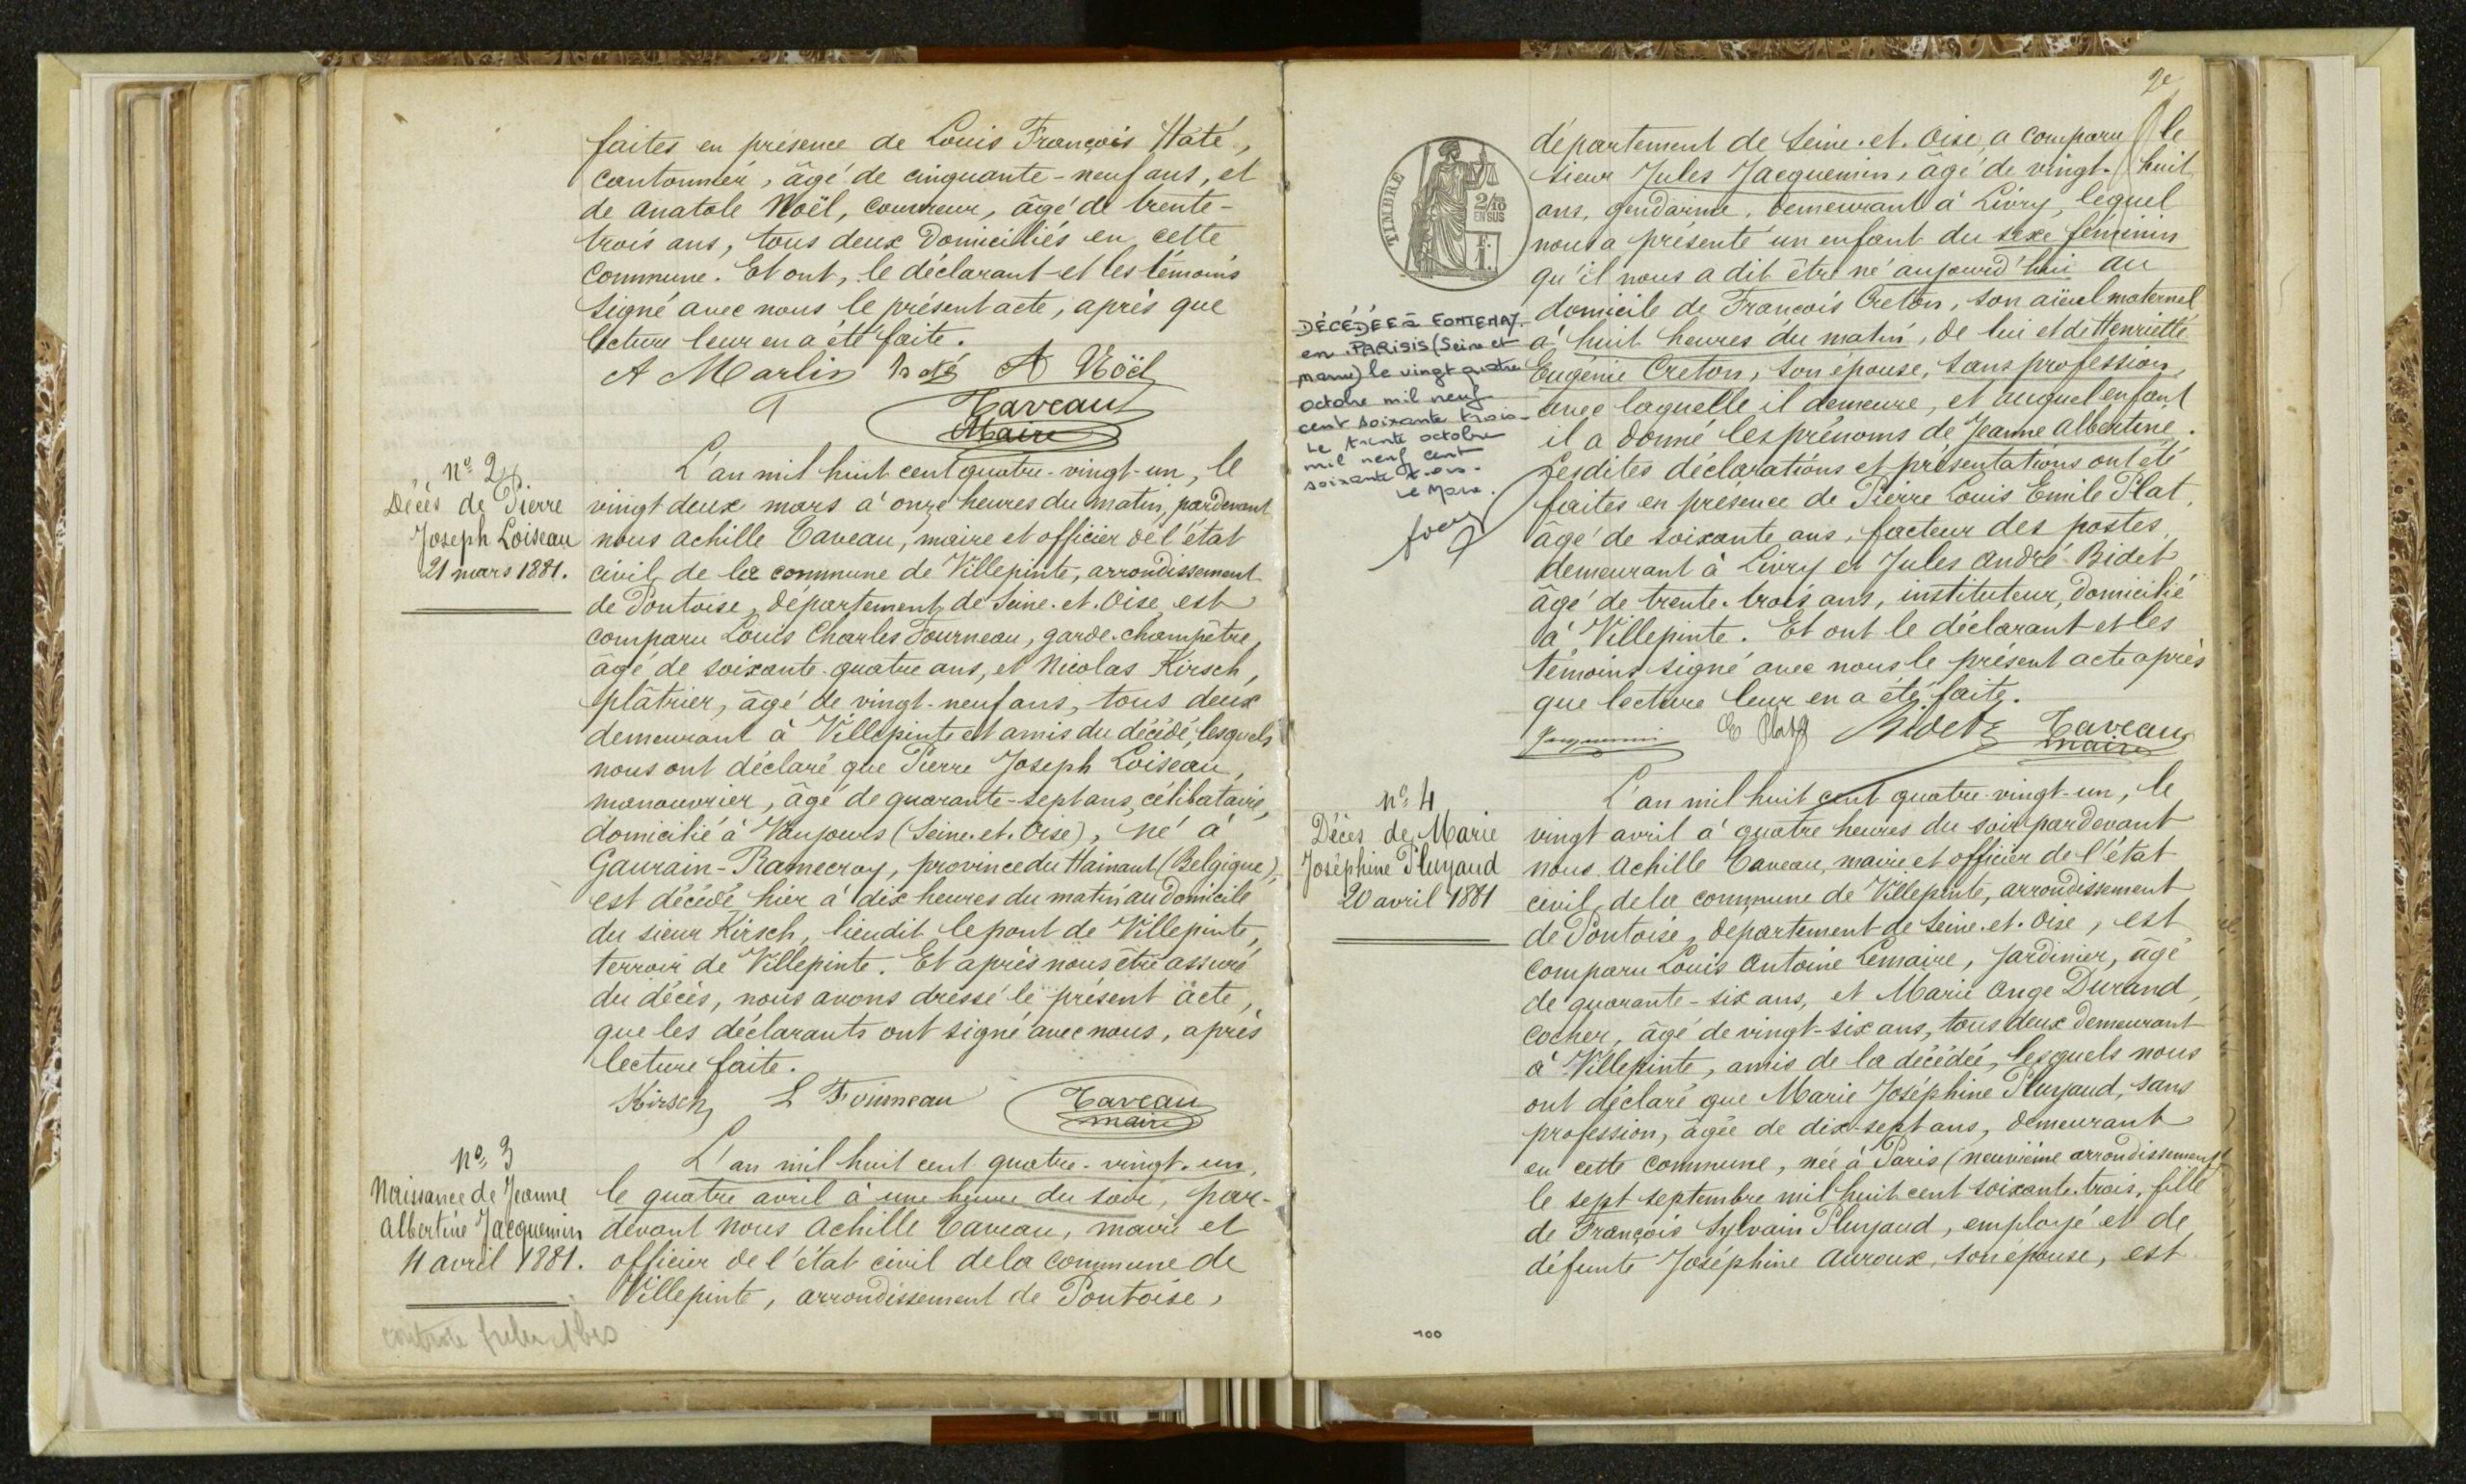 faites en présence de Louis François Haté,
cantonnier, âgé de cinquante-neuf ans, et
de Anatole Noël, couvreur, âgé de trente-
trois ans, tous deux domiciliés en cette
commune. Et ont, le déclarant et les témoins
signé avec nous le présent acte, après que
lecture leur en a été faite.
A Marlin haté A Noël
Taveau
Maire
n° 2
Décès de Pierre
Joseph Loiseau
21 mars 1881.
L'an mil huit cent quatre-vingt-un, le
vingt deux mars à onze heures du matin, pardevant
nous Achille Taveau, maire et officier de l'état
civil de la commune de Villepinte, arrondissement
de Pontoise, département de Seine-et-Oise, est
comparu Louis Charles Fourneau, garde-champêtre,
âgé de soixante-quatre ans, et Nicolas Kirsch,
plâtrier, âgé de vingt-neuf ans, tous deux
demeurant à Villepinte et amis du décédé, lesquels
nous ont déclaré que Pierre Joseph Loiseau,
manouvrier, âgé de quarante-sept ans, célibataire,
domicilié à Vaujours (Seine-et-Oise), né à
Gaurain-Ramecroy, province du Hainaut (Belgique),
est décédé hier à dix heures du matin au domicile
du sieur Kirsch, lieudit le pont de Villepinte,
terroir de Villepinte. Et après nous être assuré
du décès, nous avons dressé le présent acte,
que les déclarants ont signé avec nous, après
lecture faite.
Kirsch L Fourneau Taveau
maire
n° 3
Naissance de Jeanne
Albertine Jacquemin
4 avril 1881.
L'an mil huit cent quatre-vingt-un,
le quatre avril à une heure du soir, par-
devant nous Achille Taveau, maire et
officier de l'état civil de la commune de
Villepinte, arrondissement de Pontoise,
2e
département de Seine-et-Oise, a comparu le
sieur Jules Jacquemin, âgé de vingt-huit
ans, gendarme, demeurant à Livry, lequel
nous a présenté un enfant du sexe féminin
qu'il nous a dit être né aujourd'hui au
domicile de François Creton, son aïeul maternel
à huit heures du matin, de lui et de Henriette
Eugénie Creton, son épouse, sans profession,
avec laquelle il demeure, et auquel enfant
il a donné les prénoms de Jeanne Albertine.
Lesdites déclarations et présentations ont été
faites en présence de Pierre Louis Emile Plat,
âgé de soixante ans, facteur des postes,
demeurant à Livry et Jules André Bidet
âgé de trente-trois ans, instituteur, domicilié
à Villepinte. Et ont le déclarant et les
témoins signé avec nous le présent acte après
que lecture leur en a été faite.
Jacquemin E Plat Bidet Taveau
maire
TIMBRE
2/10
EN SUS
1 f.
DÉCÉDÉE à FONTENAY-
en-PARISIS (Seine et
Marne) le vingt quatre
octobre mil neuf
cent soixante trois-
Le trente octobre
mil neuf cent
soixante trois-
Le Maire.
n° 4
Décès de Marie
Joséphine Pluyaud
20 avril 1881
L'an mil huit cent quatre-vingt-un, le
vingt avril à quatre heures du soir pardevant
nous Achille Taveau, maire et officier de l'état
civil de la commune de Villepinte, arrondissement
de Pontoise, département de Seine-et-Oise, est
comparu Louis Antoine Lemaire, jardinier, âgé
de quarante-six ans, et Marie Ange Durand,
cocher, âgé de vingt-six ans, tous deux demeurant
à Villepinte, amis de la décédée, lesquels nous
ont déclaré que Marie Joséphine Pluyaud, sans
profession, âgée de dix-sept ans, demeurant
en cette commune, née à Paris (neuvième arrondissement)
le sept septembre mil huit cent soixante-trois, fille
de François Sylvain Pluyaud, employé et de
défunte Joséphine Auroux, son épouse, est
100